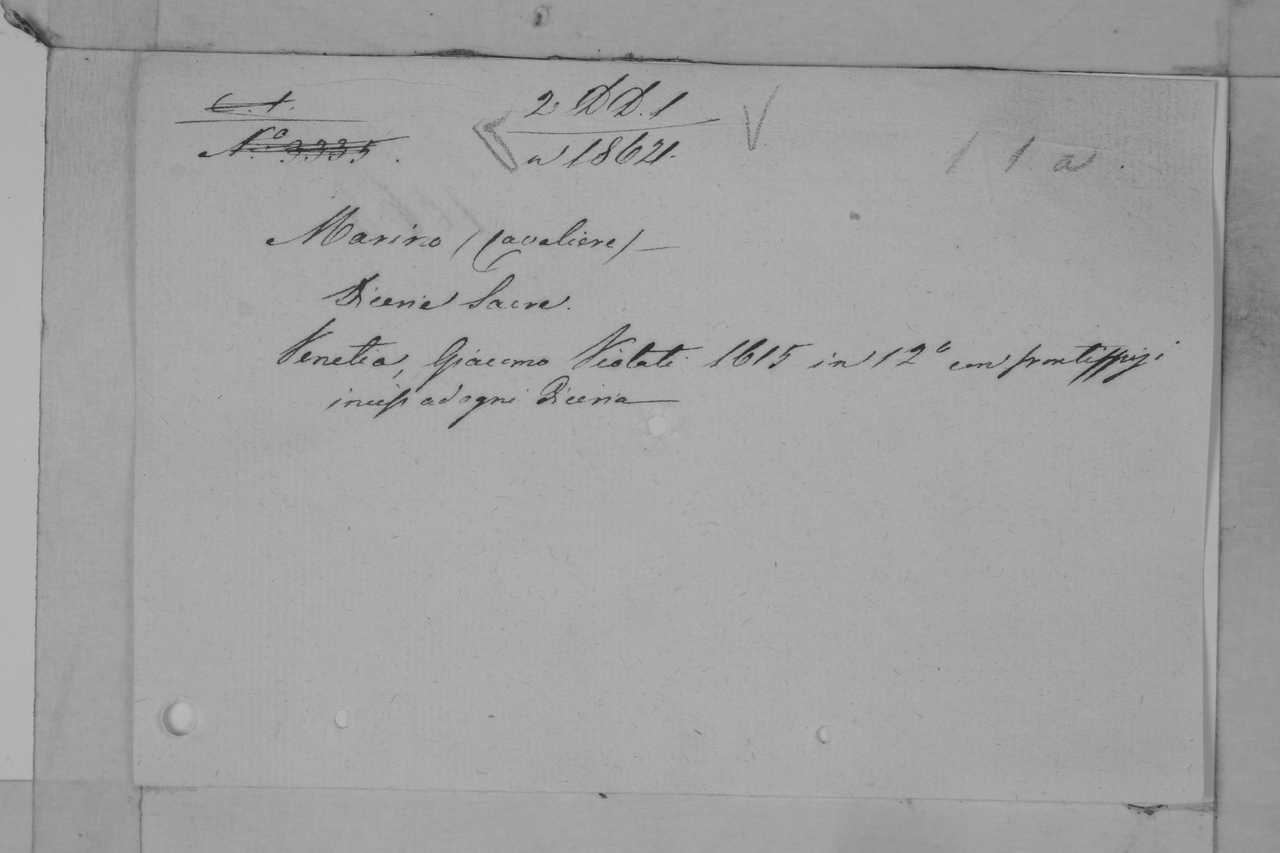 C. 1.
2 DD. 1
N.º 3335.
n 1864.
1 1 a.
Marino (Cavaliere)—
Dicerie Sacre.
Venetia, Giacomo Violati 1615 in 12º con frontispizi
incisi ad ogni Diceria—